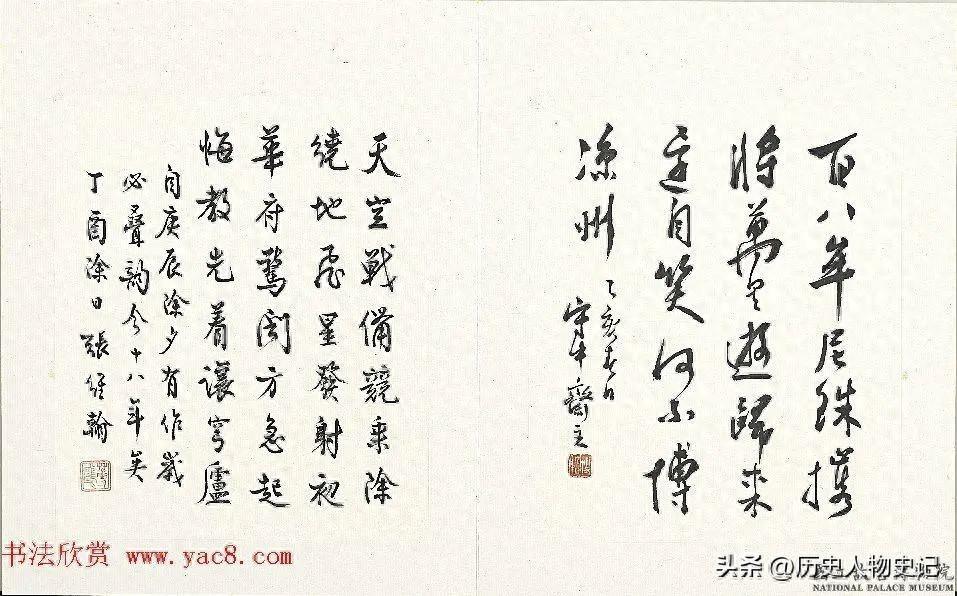 百八牟尼珠携
將萬里遊歸來
還自笑何不博
涼州
乙亥春日
守中齋主
天空戰備競乘除
繞地飛星發射初
華府驚聞方急起
悔教先着讓穹廬
自庚辰除夕有作歲
必疊韵今十八年矣
丁酉除日 張維翰
书法欣赏 www.yac8.com
头条 @历史人物史记
NATIONAL PALACE MUSEUM